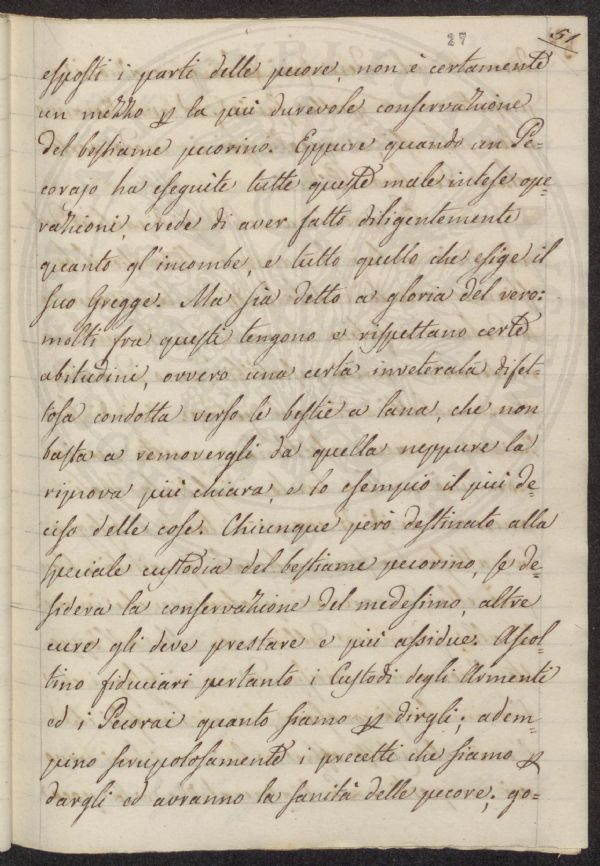 27
51
esposti i parti delle pecore, non è certamente
un mezzo p la più durevole conservazione
del bestiame pecorino. Eppure quando un Pe=
corajo ha eseguite tutte queste male intese ope=
razioni, crede di aver fatto diligentemente
quanto gl'incombe, e tutto quello che esige il
suo Gregge. Ma sia detto a gloria del vero:
molti fra questi tengono e rispettano certe
abitudini, ovvero una certa inveterata difet=
tosa condotta verso le bestie a lana, che non
basta a removergli da quella neppure la
riprova più chiara, e lo esempio il più de=
ciso delle cose. Chiunque però destinato alla
speciale custodia del bestiame pecorino, se de=
sidera la conservazione del medesimo, altre
cure gli deve prestare e più assidue. Ascol=
tino fiduciari pertanto i Custodi degli Armenti
ed i Pecorai quanto siamo p dirgli; adem=
pino scrupolosamente i precetti che siamo p
dargli ed avranno la sanità delle pecore; go=